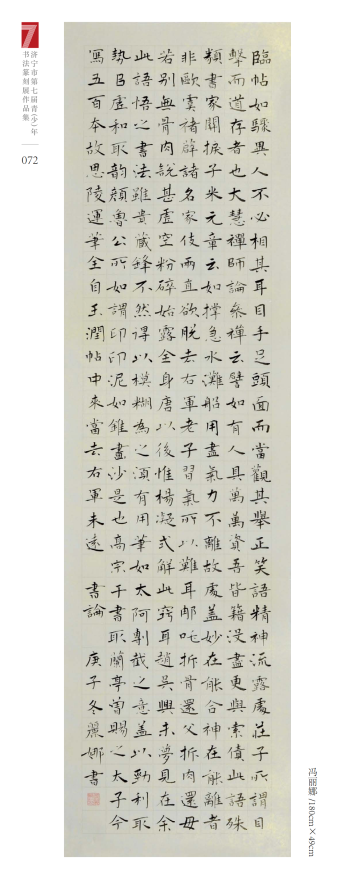 济宁市第七届青(少)年
书法篆刻展作品集
072
臨帖如驟異人不必相其耳目手足頭面而當觀其舉正笑語精神流露處莊子所謂目
擊而道存者也大慧禪師論參禪云譬如有人具萬萬資吾皆籍沒盡更與索債此語殊
類書家關捩子米元章云如撐急水灘船用盡氣力不離故處蓋妙在能合神在能離昔
非歐虞褚薛諸名家伎兩直欲脫去右軍老子習氣所以難耳那吒拆骨還父拆肉還母
若別無骨肉說甚虛空粉碎始露全身唐以後惟楊凝式解此竅耳趙吳興未夢見在余
此語悟之書法雖貴藏鋒不然得以模糊為之須有用筆如太阿剸截之意蓋以勁利取
勢以虛和取韵顏魯公所如謂印印泥如錐畫沙是也高宗于書取蘭亭曾賜之太子令
寫五百本故思陵運筆全自玉潤帖中來當去右軍未遠 書論 庚子冬麗娜書
冯丽娜/180cm×49cm